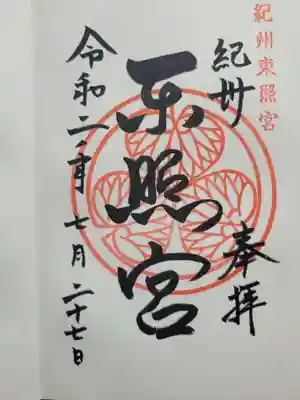 紀州東照宮
紀州
奉拝
东照宮
令和二年七月二十七日